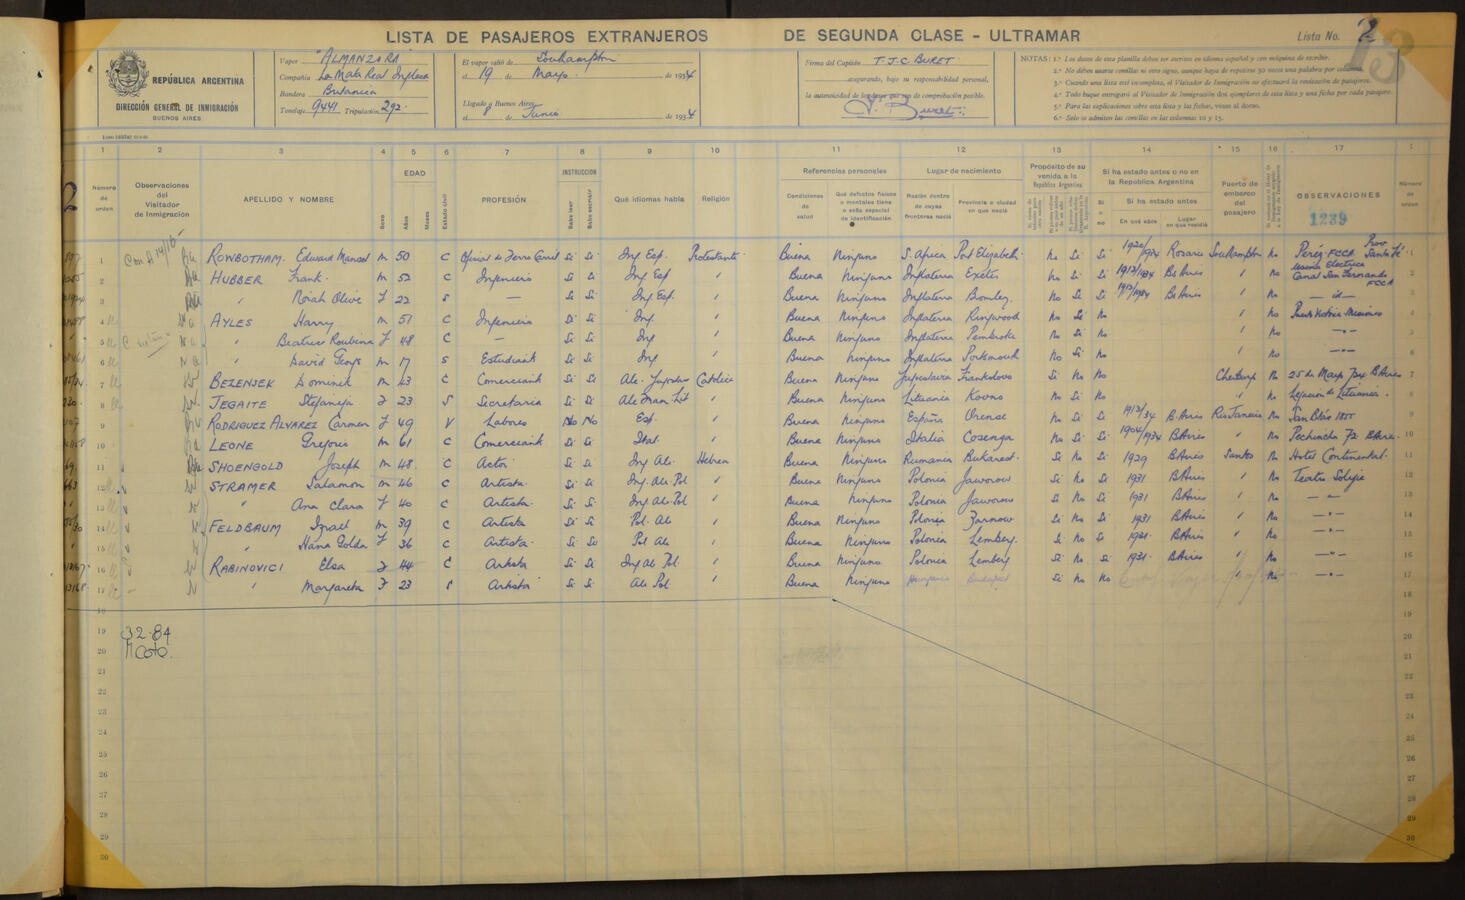 LISTA DE PASAJEROS EXTRANJEROS DE SEGUNDA CLASE - ULTRAMAR Lista No. 2
13
REPÚBLICA ARGENTINA
DIRECCIÓN GENERAL DE INMIGRACIÓN
BUENOS AIRES
Vapor "ALMANZORA"
Compañía La Mala Real Inglesa
Bandera Britanica
Tonelaje 9441 Tripulación 292
El vapor salió de Southampton
el 19 de Mayo de 1934
Llegado a Buenos Aires
el 8 de Junio de 1934
Firma del Capitán T.J.C. BURET
asegurando, bajo su responsabilidad personal,
la autenticidad de los datos que son de comprobación posible.
NOTAS: 1.ª Los datos de esta planilla deben ser escritos en idioma español y con máquina de escribir.
2.ª No deben usarse comillas ni otro signo, aunque haya de repetirse 30 veces una palabra por columna.
3.ª Cuando una lista esté incompleta, el Visitador de Inmigración no efectuará la revisación de pasajeros.
4.ª Todo buque entregará al Visitador de Inmigración dos ejemplares de esta lista y una ficha por cada pasajero.
5.ª Para las explicaciones sobre esta lista y las fichas, véase al dorso.
6.ª Solo se admiten las comillas en las columnas 10 y 15.
1 2 3 4 5 6 7 8 9 10 11 12 13 14 15 16 17
Número de orden
Observaciones del Visitador de Inmigración
APELLIDO Y NOMBRE
Sexo
EDAD
Años
Meses
Estado civil
PROFESIÓN
INSTRUCCIÓN
Sabe leer
Sabe escribir
Qué idiomas habla
Religión
Referencias personales
Condiciones de salud
Qué defectos físicos o mentales tiene o seña especial de identificación
Lugar de nacimiento
Nación dentro de cuyas fronteras nació
Provincia o ciudad en que nació
Propósito de su venida a la República Argentina
Si ha estado antes o no en la República Argentina
Si o no
Si ha estado antes
En qué años
Lugar en que residió
Puerto de embarco del pasajero
OBSERVACIONES
1239
Número de orden
1 ROWBOTHAM. Edward Mansel m 50 C Oficial de Ferro Carril Si Si Ing Esp. Protestante Buena Ninguno S. Africa Port Elizabeth No Si Si 1920/1934 Rosario Southampton No Peréz FCCA Prov. Santa Fé 1
2 HUBBER Frank. m 52 C Ingeniero Si Si Ing Esp " Buena Ninguno Inglaterra Exeter No Si Si 1912/1934 Bs Aires " No Usina Electrica Canal San Fernando FCCA 2
3 " Norah Olive F 22 S — Si Si Ing Esp. " Buena Ninguno Inglaterra Bromley. No Si Si 1913/1934 Bs Aires " No — id — 3
4 AYLES Harry m 51 C Ingeniero Si Si Ing. " Buena Ninguno Inglaterra Ringwood No Si No " No Puerto Victoria Misiones 4
5 " Beatrice Roubina F 48 C — Si Si Ing " Buena Ninguno Inglaterra Pembroke No Si No " No — " — 5
6 " David George m 17 S Estudiante Si Si Ing " Buena Ninguno Inglaterra Portsmouth No Si No " No — " — 6
7 BEZENJEK Dominik m 43 C Comerciante Si Si Ale. Jugoslavo Catolica Buena Ninguno Jugoslavia Frankolovo Si No No Cherburg No 25 de Mayo 734 B Aires 7
8 JEGAITE Stefanija F 23 S Secretaria Si Si Ale Fran. Lit " Buena Ninguno Lituania Kovno No Si No " No Legacion de Lituania. 8
9 RODRIGUEZ ALVAREZ Carmen F 49 V Labores No No Esp. " Buena Ninguno España Orense No Si Si 1912/34 B Aires Rio Janeiro No San Blás 1855 9
10 LEONE Gregorio m 61 C Comerciante Si Si Ital. " Buena Ninguno Italia Cosenza No Si Si 1904/1934 B Aires " No Pichincha 72 B Aires. 10
11 SHOENGOLD Joseph m 48. C Actor Si Si Ing Ale. Hebrea Buena Ninguno Rumania Bukarest. Si No Si 1929 B Aires Santos No Hotel Continental. 11
12 STRAMER Salamon m 46 C Artista. Si Si Ing. Ale. Pol " Buena Ninguno Polonia Jaworow Si No Si 1931 B Aires " No Teatro Soleil 12
13 " Ana Clara F 40 C Artista. Si Si Ing. Ale. Pol " Buena Ninguno Polonia Jaworow Si No Si 1931 B Aires " No — " — 13
14 FELDBAUM Izrael m 39 C Artista Si Si Pol. Ale. " Buena Ninguno Polonia Zarnow Si No Si 1931 B Aires " No — " — 14
15 " Hana Golda F 36 C Artista. Si Si Pol Ale. " Buena Ninguno Polonia Lemberg. Si No Si 1931. B Aires " No — " — 15
16 RABINOVICI Elsa F 44 C Artista Si Si Ing Ale Pol. " Buena Ninguno Polonia Lemberg Si No Si 1931. B Aires " No — " — 16
17 " Margareta F 23 S Artista Si Si Ale Pol " Buena Ninguno Hungaria Budapest Si No No " No — " — 17
18 18
19 32-84 19
20 20
21 21
22 22
23 23
24 24
25 25
26 26
27 27
28 28
29 29
30 30